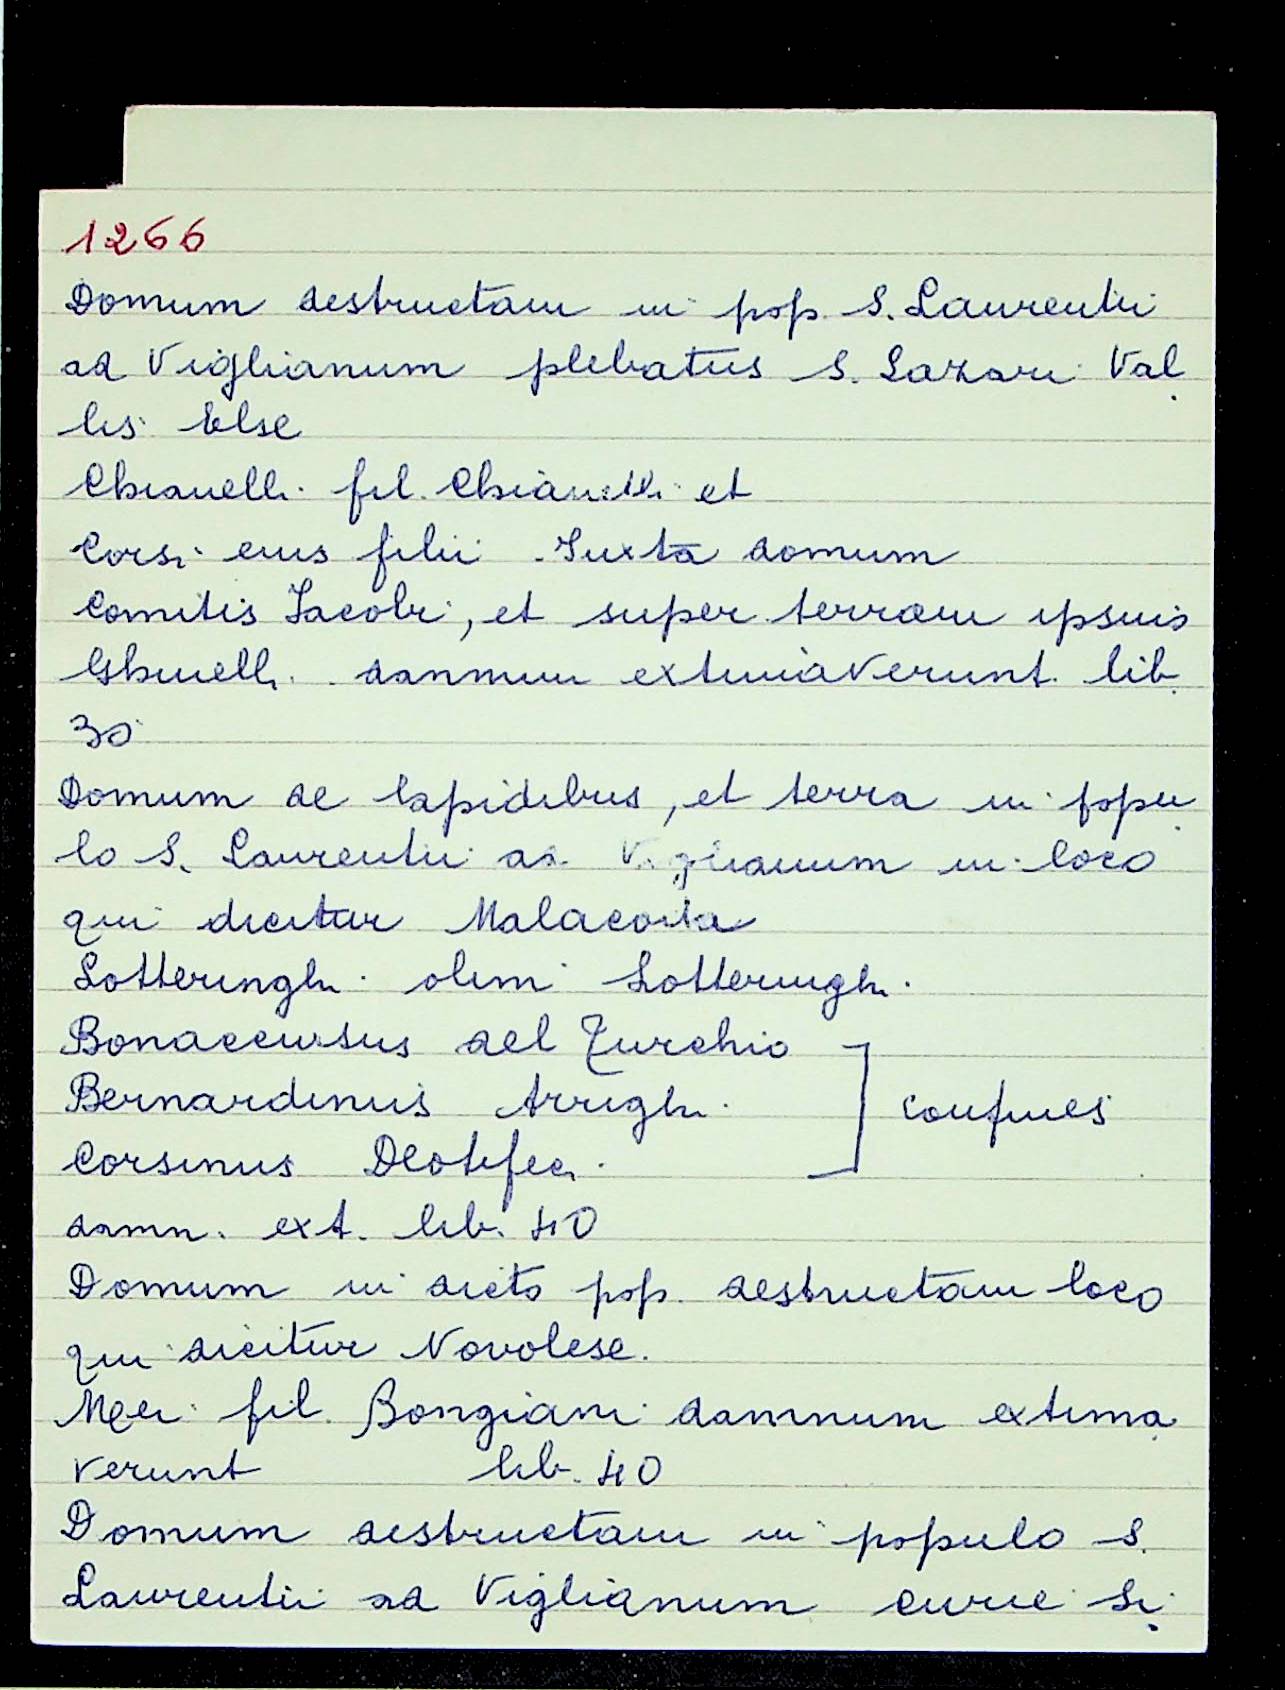 1266
Domum destructam in pop. S. Laurentii
ad Viglianum plebatus S. Lazari Val
lis Else
Chianelli fil. Chianelli et
Corsi eius filii Iuxta domum
Comitis Iacobi, et super terram ipsius
damnum extimaverunt lib.
30
Domum de lapidibus, et terra in popu
lo S. Laurentii ad Viglianum in loco
qui dicitur Malacoda
Lotteringhi olim Lotteringhi
Bonaccursus del Turchio
Bernardinus Arrighi
Corsinus Deotifeci
confines
damn. ext. lib. 40
Domum in dicto pop. destructam loco
qui dicitur Novolese.
Mei fil. Bongiani damnum extima
verunt lib. 40
Domum destructam in populo S.
Laurentii ad Viglianum curie Si